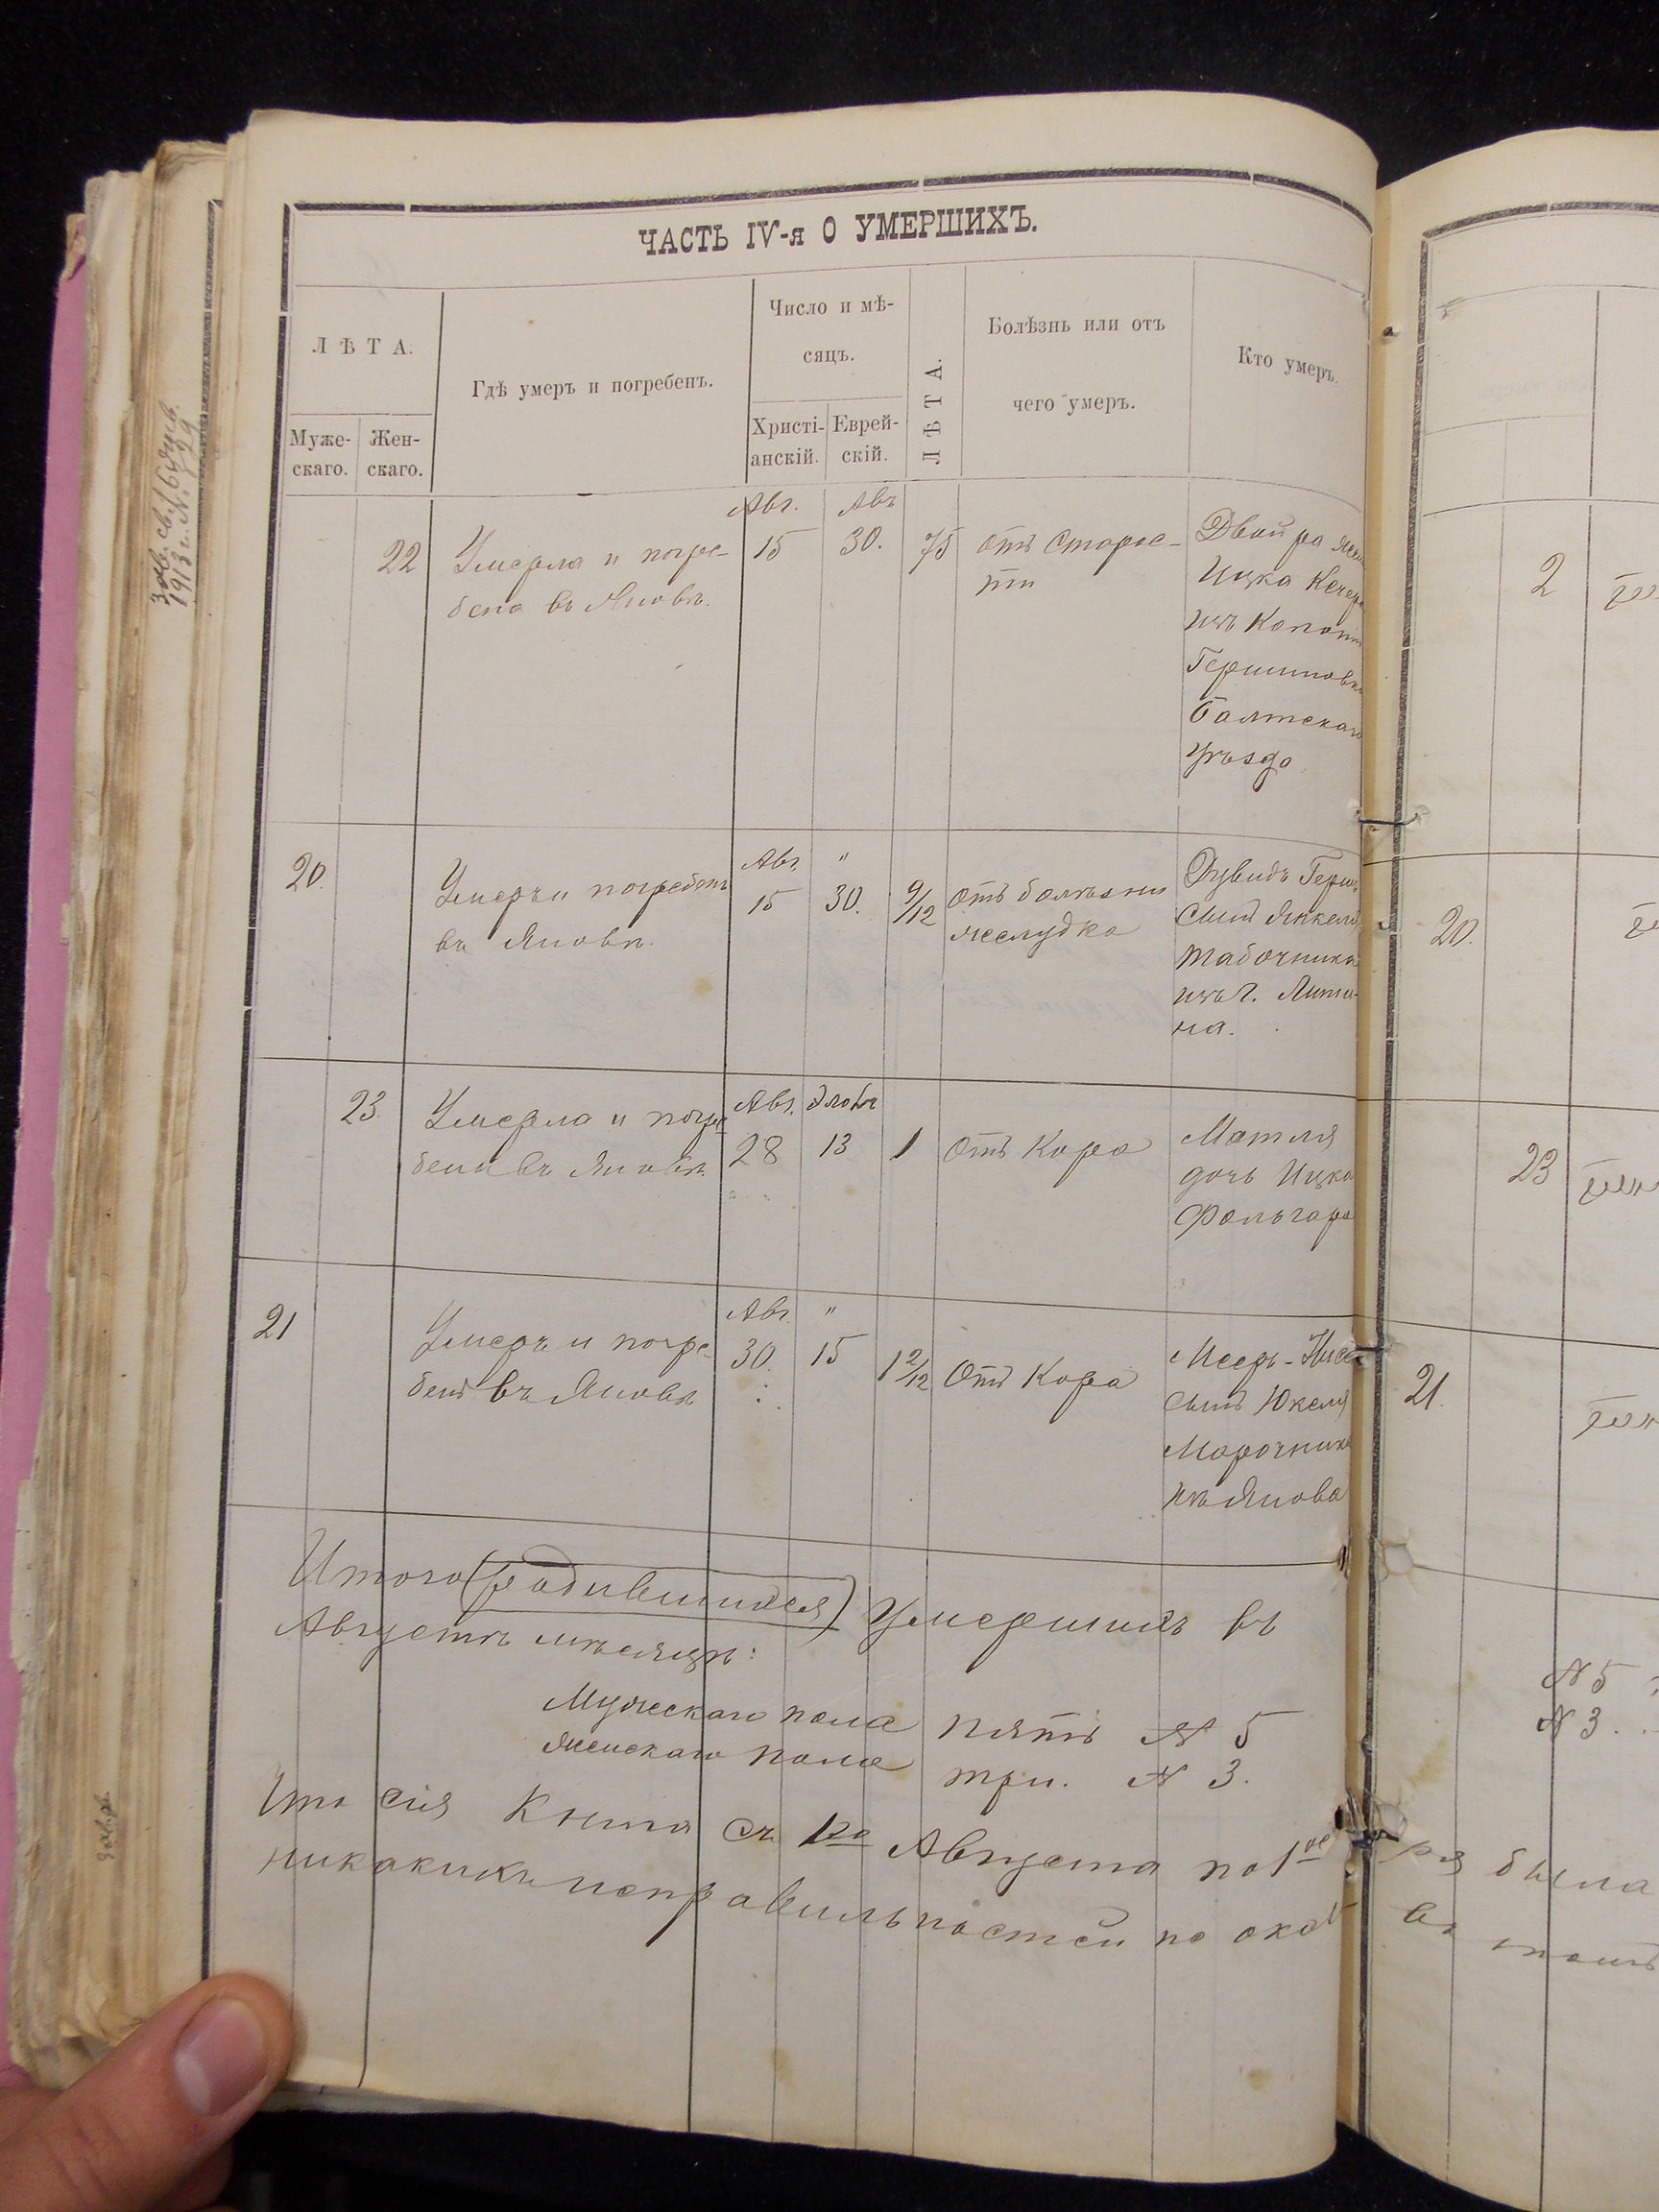 ЧАСТЬ IV-я О УМЕРШИХЪ.
ЛѢТА.
Муже-
скаго.
Жен-
скаго.
Гдѣ умеръ и погребенъ.
Число и мѣ-
сяцъ.
Христі-
анскій.
Еврей-
скій.
ЛѢТА.
Болѣзнь или отъ
чего умеръ.
Кто умеръ.
22
Умерла и погре-
бена въ Яновѣ.
Авг.
15
Авъ
30.
75
отъ Старос-
ти
Двойра
Ицка
изъ
Балтскаго
уѣзда
20.
Умеръ и погребенъ
въ Яновѣ.
Авг.
15
"
30.
9/12
отъ болѣзни
желудка
Сынъ Янкеля
Табочника
изъ г. Лити-
на.
23.
Умерла и погре-
бена въ Яновѣ.
Авг.
28
Элобъ
13
1
отъ Кора
Матля
дочь Ицка
Фольгара
21
Умеръ и погре-
бенъ въ Яновѣ
Авг.
30.
"
15
1 2/12
Отъ Кора
Мееръ-
Сынъ Юкеля
изъ Янова
Итого (родившихся) Умершихъ въ
Августѣ мѣсяцѣ:
Мужескаго пола пять № 5
Женскаго пола три. № 3.
Что сія Книга съ 1го Августа по 1ое
никакихъ неправильностей не ока
2
20.
23
21.
№ 5
№ 3.
была
въ томъ
1913 г.